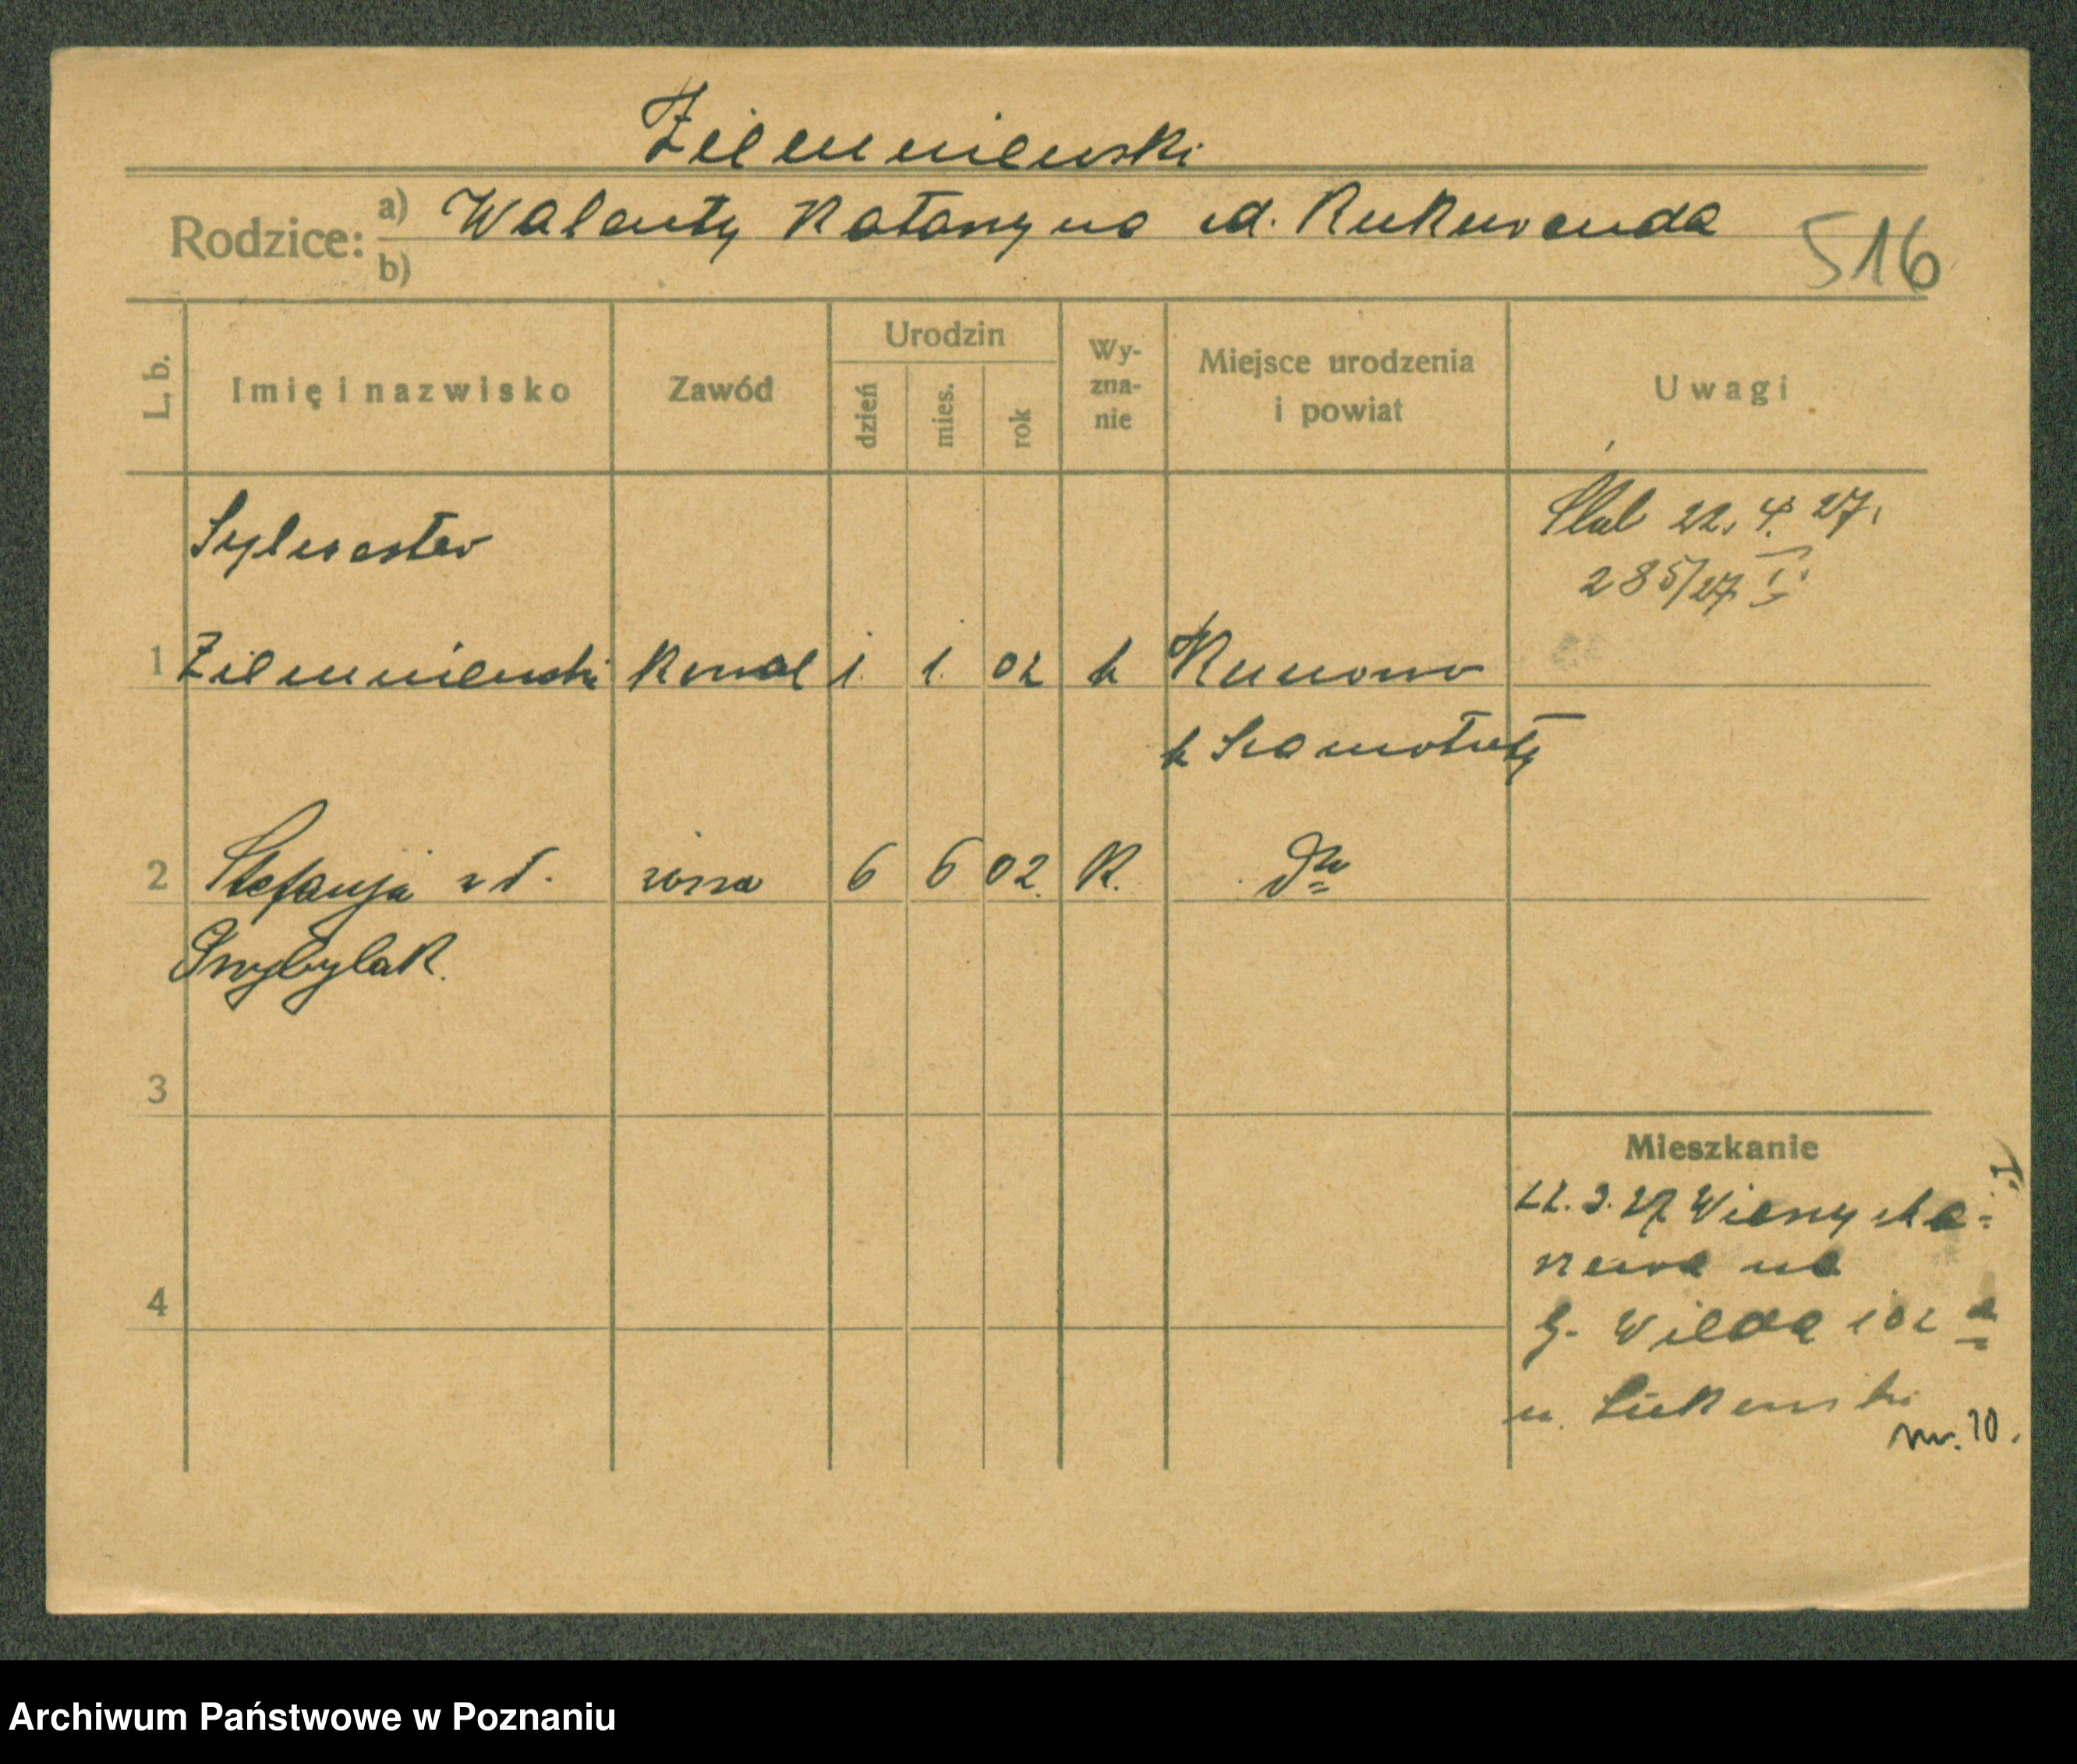 Ziemniewski
Rodzice: a) Walenty Katarzyna zd. Kukuranda
b)
516
L. b. Imię i nazwisko Zawód Urodzin dzień mies. rok Wy-zna-nie Miejsce urodzenia i powiat Uwagi
Sylwester
Ślub 22. 4. 27.
285/27 I.
1 Ziemniewski Kowal 1. 1. 02 k Kunowo
k Szamotuły
2 Stefanja zd. żona 6 6 02. K. dto
Przybylak.
3
Mieszkanie
22. 3. 27
4
G. Wilda 102
u.
nr. 10.
Archiwum Państwowe w Poznaniu